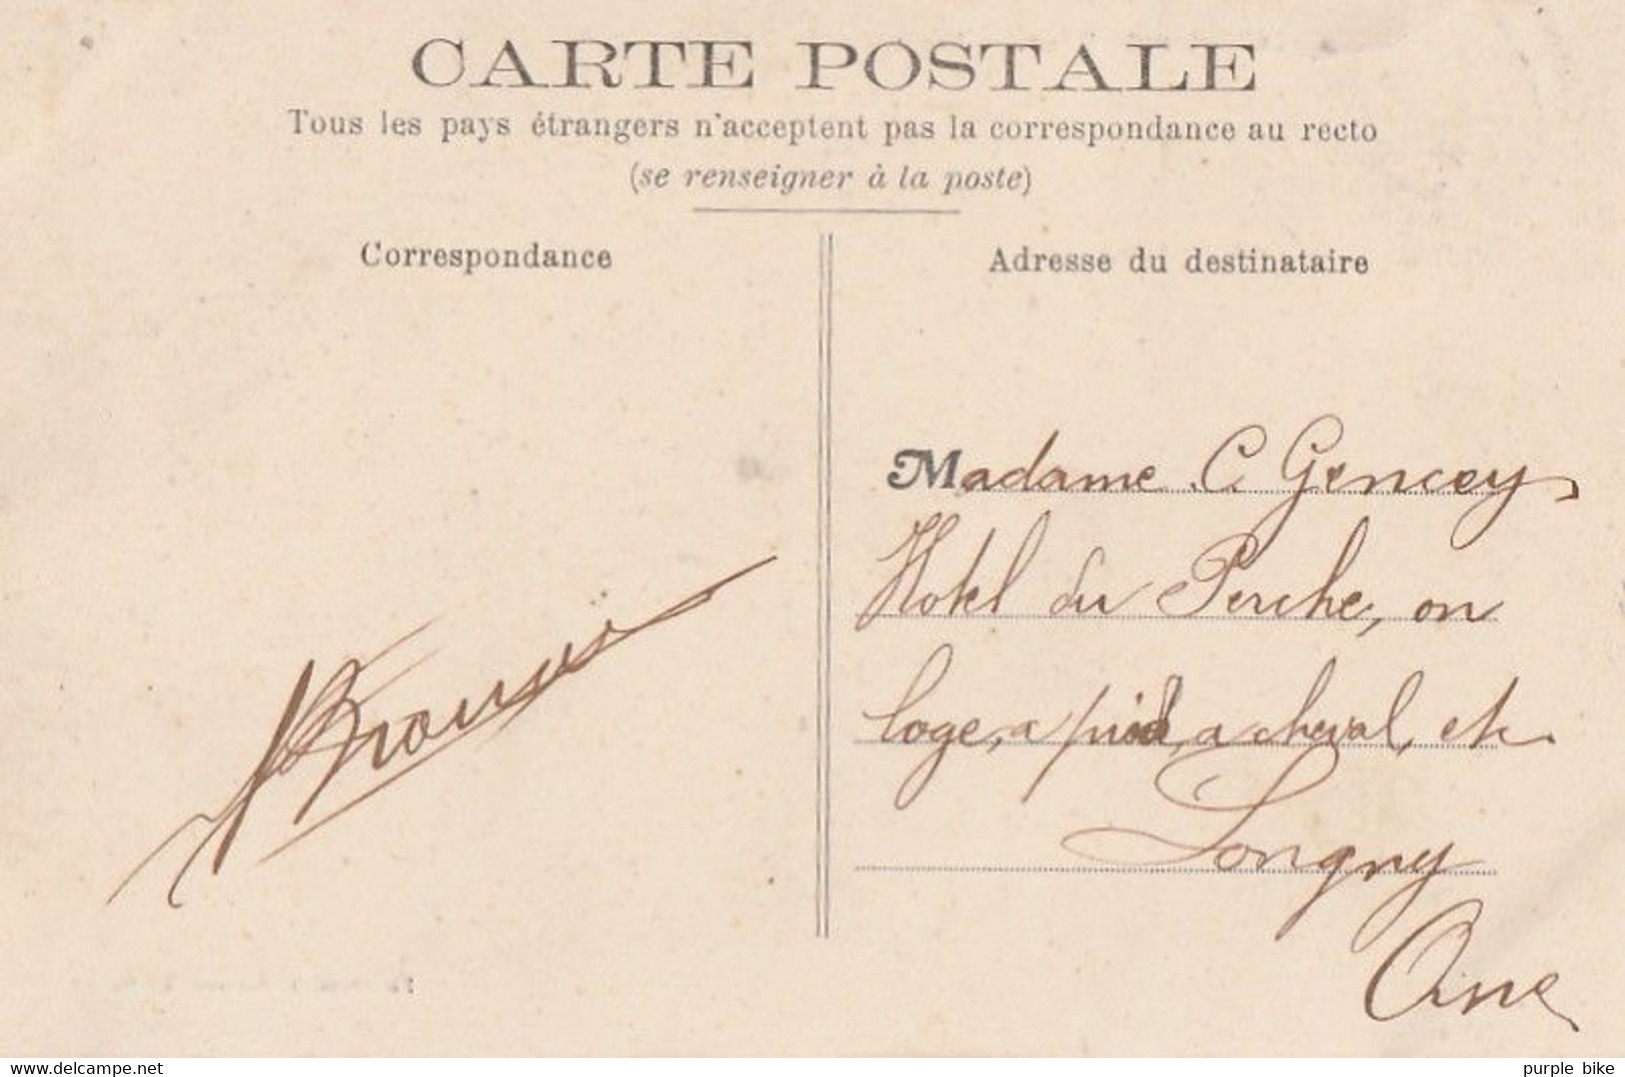 CARTE POSTALE
Tous les pays étrangers n'acceptent pas la correspondance au recto
(se renseigner à la poste)
Correspondance
Adresse du destinataire
Madame C. Gencey
Hotel du Perche, on
loge, a pied, a cheval, etc
Longny
Orne
www.delcampe.net
purple bike